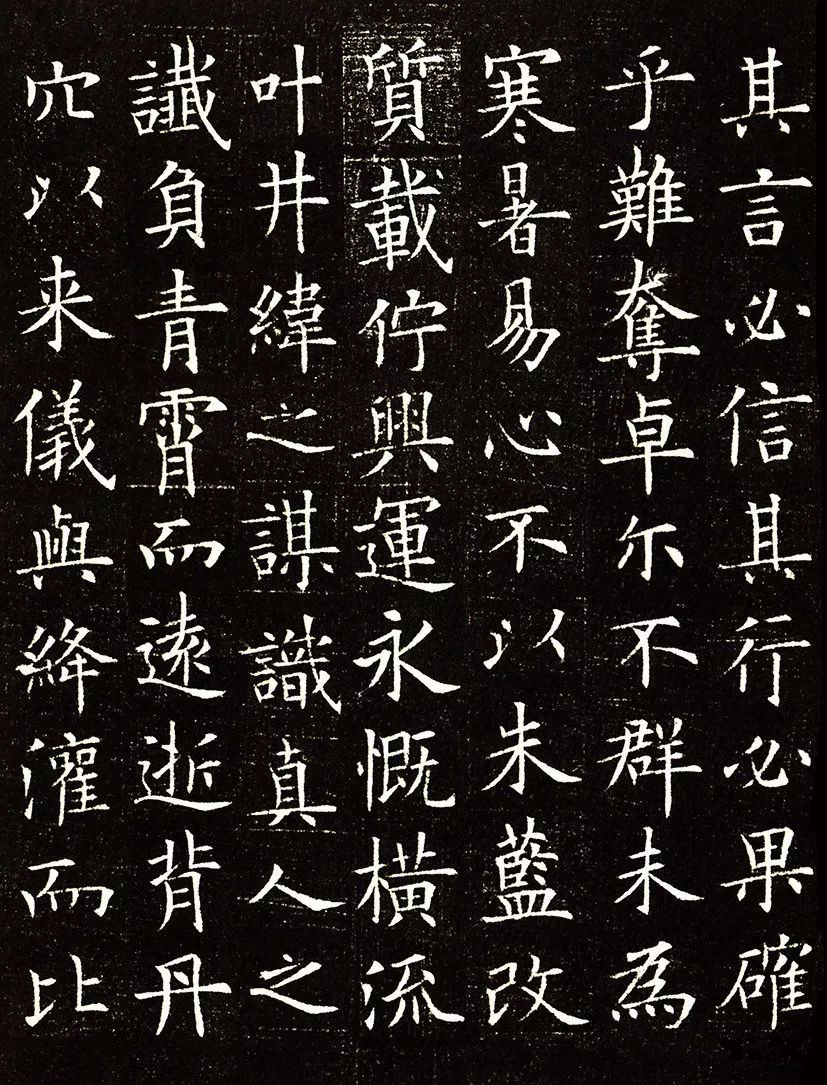 其言必信其行必果確
乎難奪卓尔不群未為
寒暑易心不以朱藍改
質載佇興運永慨橫流
叶井緯之謀識真人之
讖負青霄而遠逝背丹
穴以来儀與絳灌而比